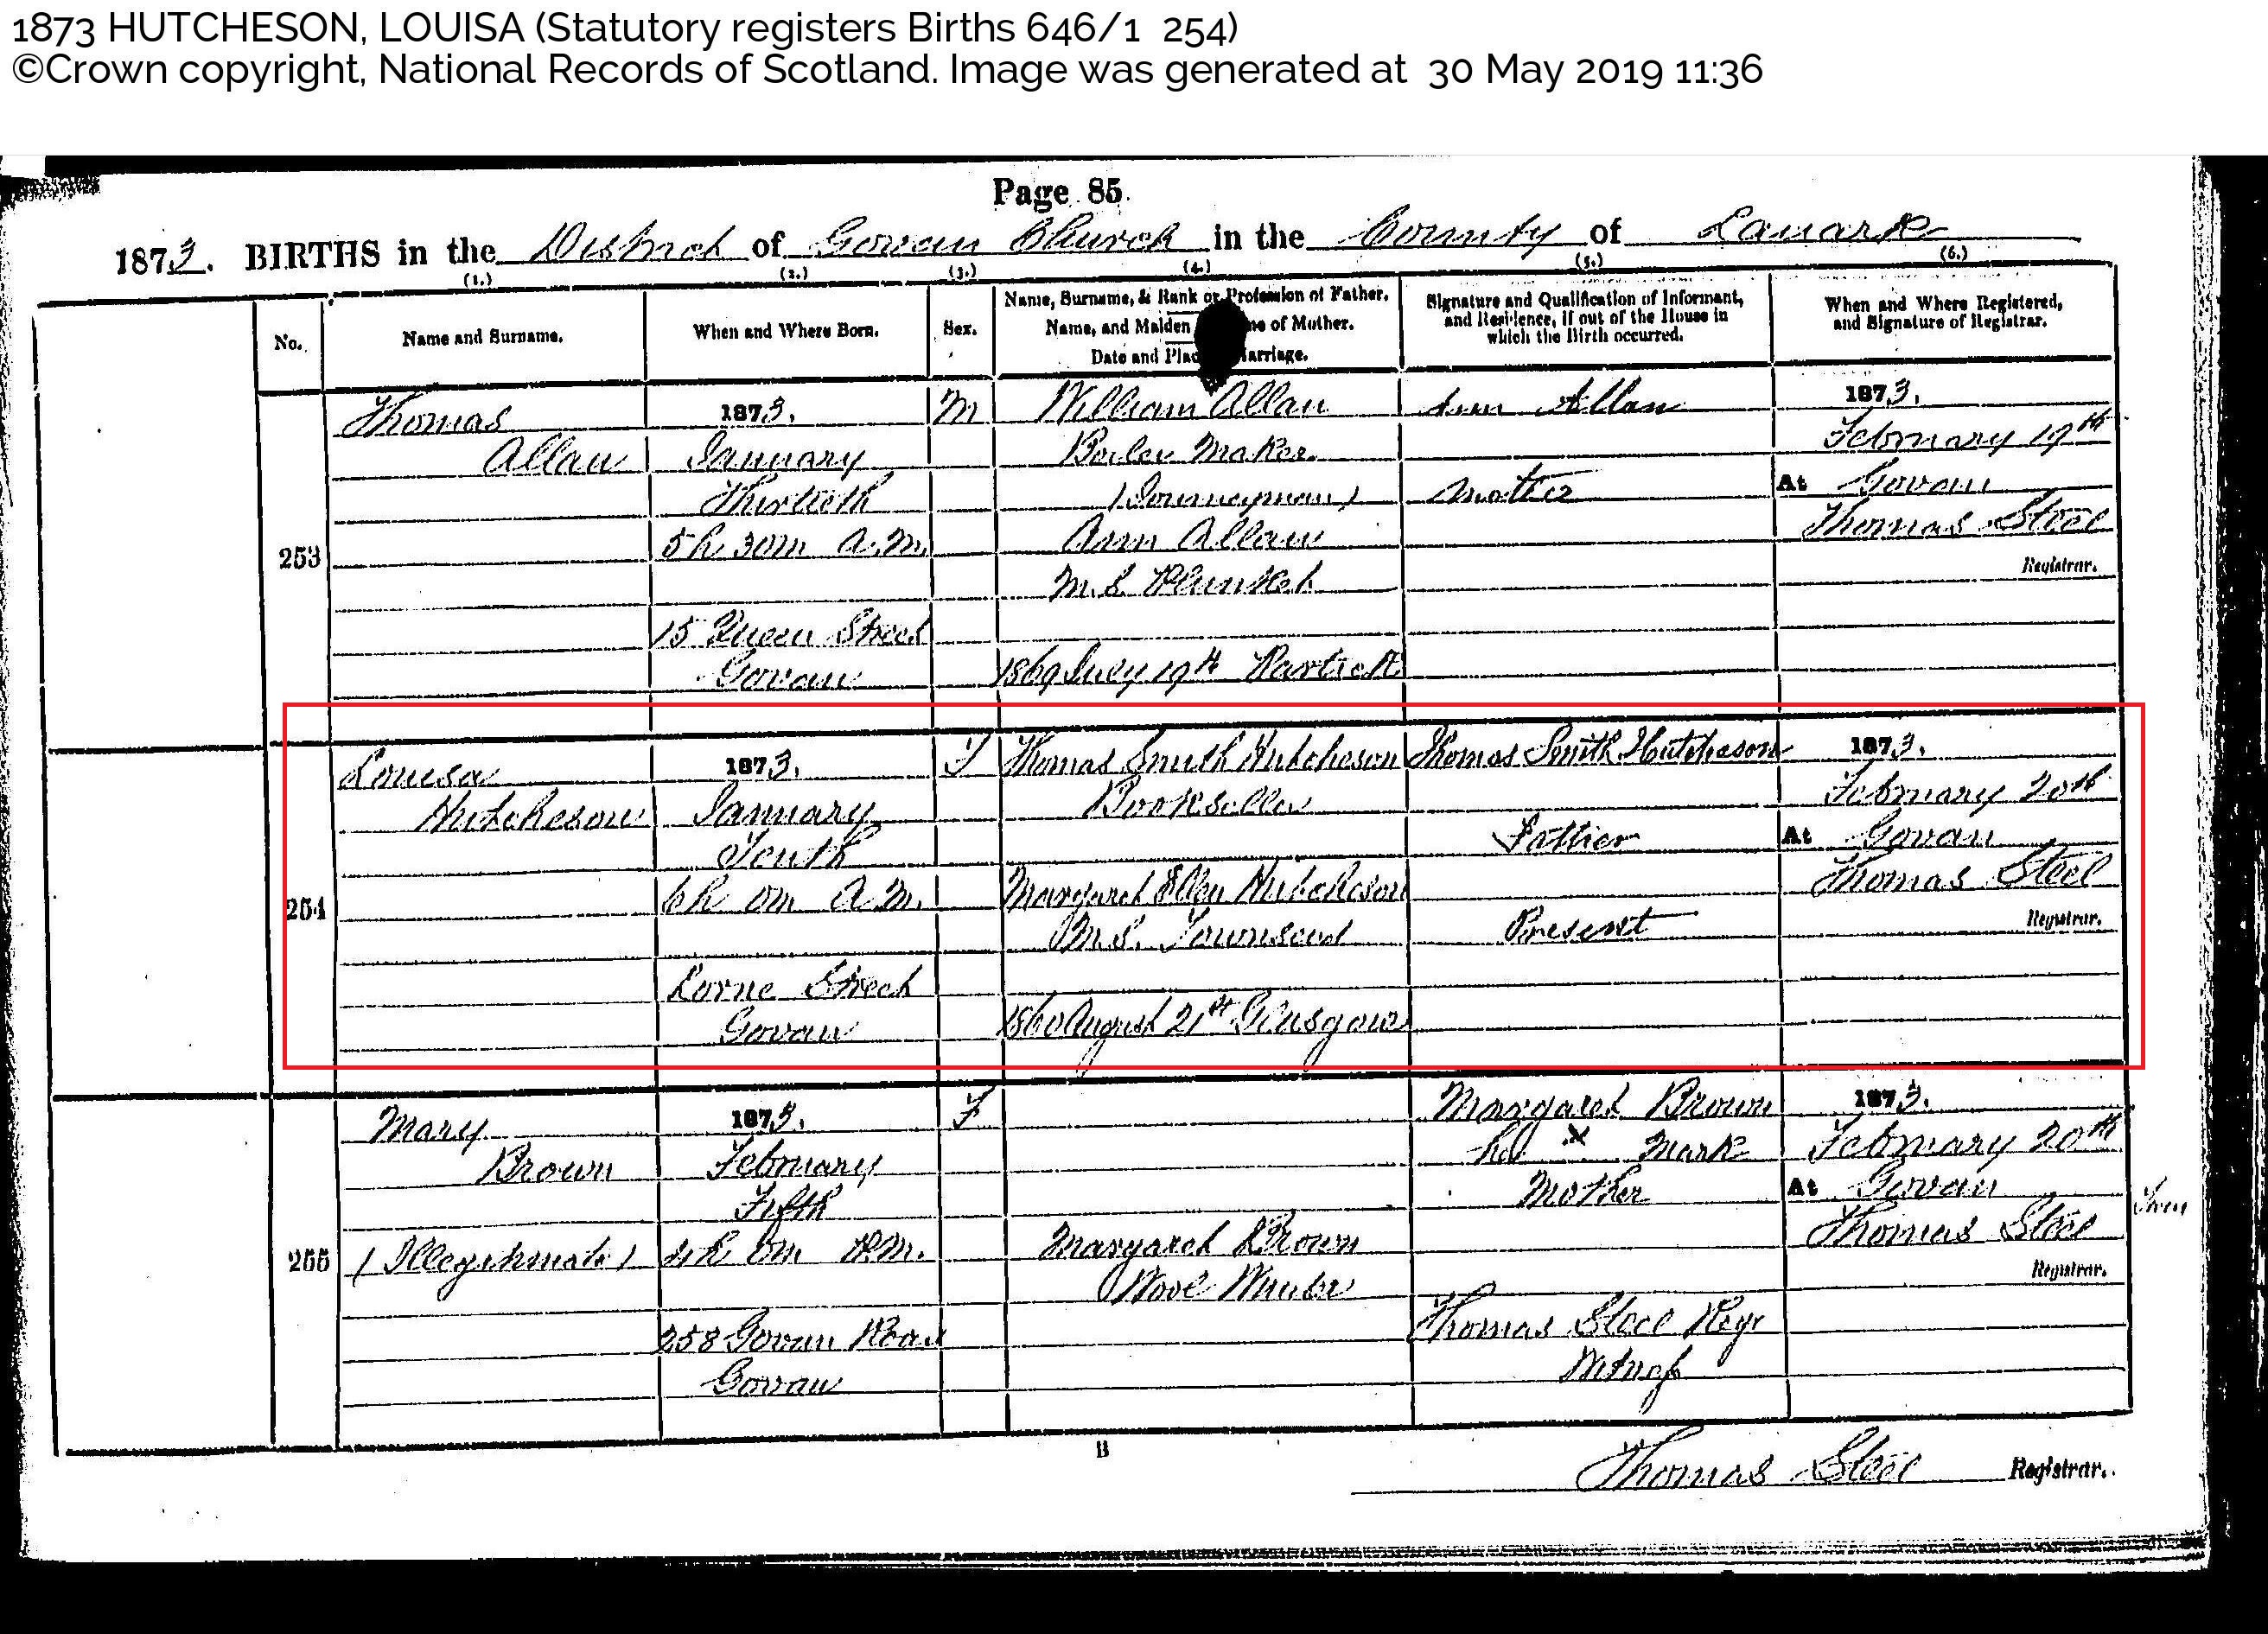 1873 HUTCHESON, LOUISA (Statutory registers Births 646/1 254)
©Crown copyright, National Records of Scotland. Image was generated at 30 May 2019 11:36
Page 85.
1873. BIRTHS in the District of Govan Church in the County of Lanark
(1.) (2.) (3.) (4.) (5.) (6.)
No. Name and Surname. When and Where Born. Sex.
Name, Surname, & Rank or Profession of Father.
Name, and Maiden me of Mother.
Date and Plac arriage.
Signature and Qualification of Informant,
and Residence, if out of the House in
which the Birth occurred.
When and Where Registered,
and Signature of Registrar.
253
Thomas
Allan
1873.
January
Thirtieth
5h 30m A.M.
15 Queen Street
Govan
M
William Allan
Boiler Maker
(Journeyman)
Ann Allan
M.S. Plunket
1869 July 19th Partick
Ann Allan
Mother
1873.
February 19th
At Govan
Thomas Steel
Registrar.
254
Louisa
Hutcheson
1873.
January
Tenth
6h 0m A.M.
Lorne Street
Govan
F
Thomas Smith Hutcheson
Bookseller
Margaret Ellen Hutcheson
M.S. Townsend
1860 August 21st Glasgow
Thomas Smith Hutcheson
Father
Present
1873.
February 20th
At Govan
Thomas Steel
Registrar.
255
Mary
Brown
(Illegitimate)
1873.
February
Fifth
4h 0m P.M.
258 Govan Road
Govan
F
Margaret Brown
Wool Winder
Margaret Brown
her x mark
Mother
Thomas Steel Regr
Witness
1873.
February 20th
At Govan
Thomas Steel
Registrar.
B
Thomas Steel Registrar.